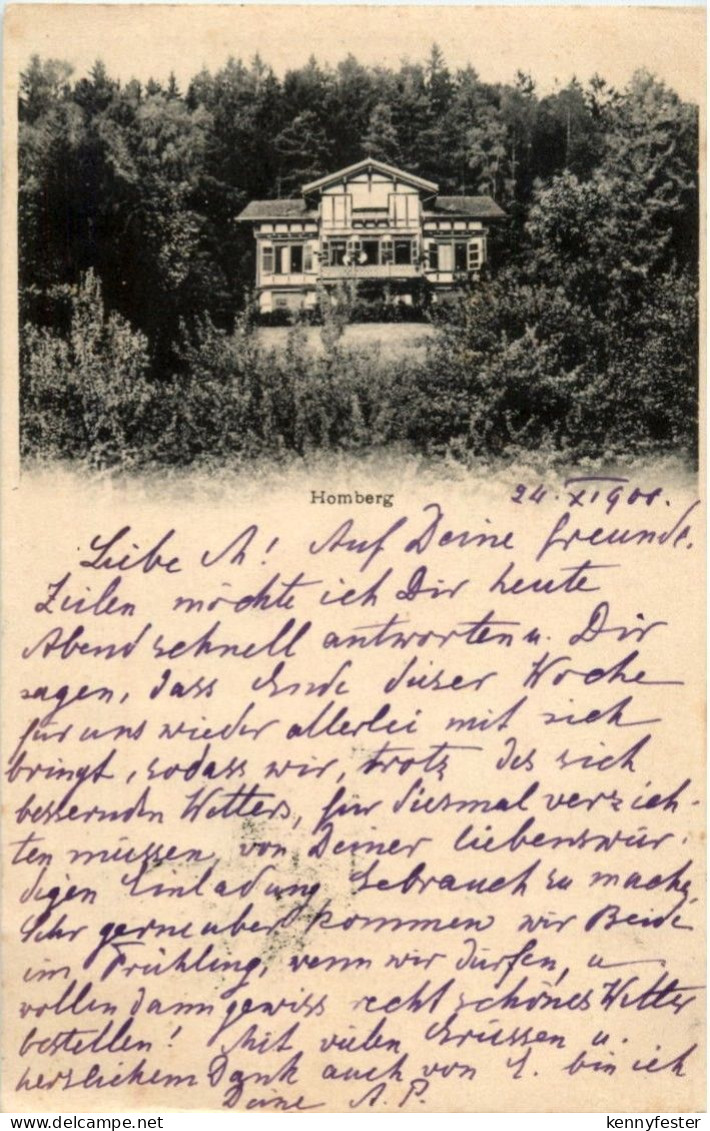 Homberg
24. XI 1900.
Liebe A! Auf Deine freundl.
Zeilen möchte ich Dir heute
Abend schnell antworten u. Dir
sagen, dass Ende dieser Woche
für uns wieder allerlei mit sich
bringt, sodass wir, trotz des sich
bessernden Wetters, für diesmal verzich-
ten müssen, von Deiner liebenswür-
digen Einladung Gebrauch zu mache.
Sehr gerne aber kommen wir Beide
im Frühling, wenn wir dürfen, u
wollen dann gewiss recht schönes Wetter
bestellen! Mit vielen Grüssen u.
herzlichem Dank auch von E. bin ich
Deine A. P.
www.delcampe.net
kennyfester